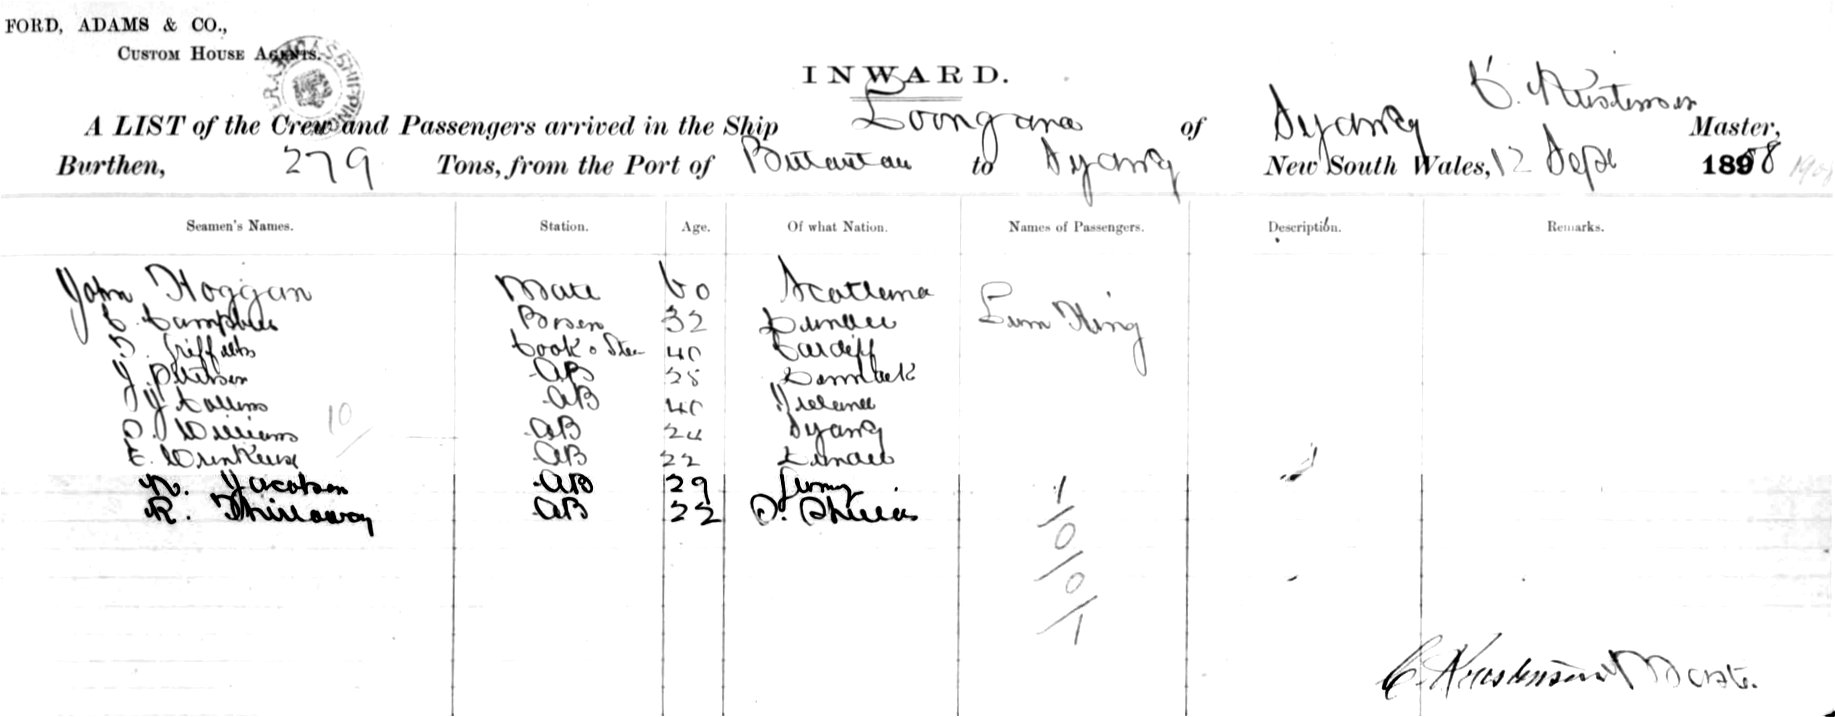 FORD, ADAMS & CO.,
CUSTOM HOUSE AGENTS.
INWARD.
A LIST of the Crew and Passengers arrived in the Ship Loongana of Sydney C. Kustensen Master,
Burthen, 279 Tons, from the Port of to Sydney New South Wales, 12 Sept 1898 1908
Seamen's Names. Station. Age. Of what Nation. Names of Passengers. Description. Remarks.
John Hoggan Mate 60 Scotland Lum King
C. Campbell Bosen 32 Dundee
D. Griffiths Cook & Stew 40 Cardiff
J. Petersen AB 28 Denmark
J. Collins AB 40 Ireland
10
Williams AB 24 Sydney
E. AB 22 Dundee
N. Jacobsen AB 29 Germy
R. AB 22 S. Shields
1
0
0
1
C. Kustensen Master.